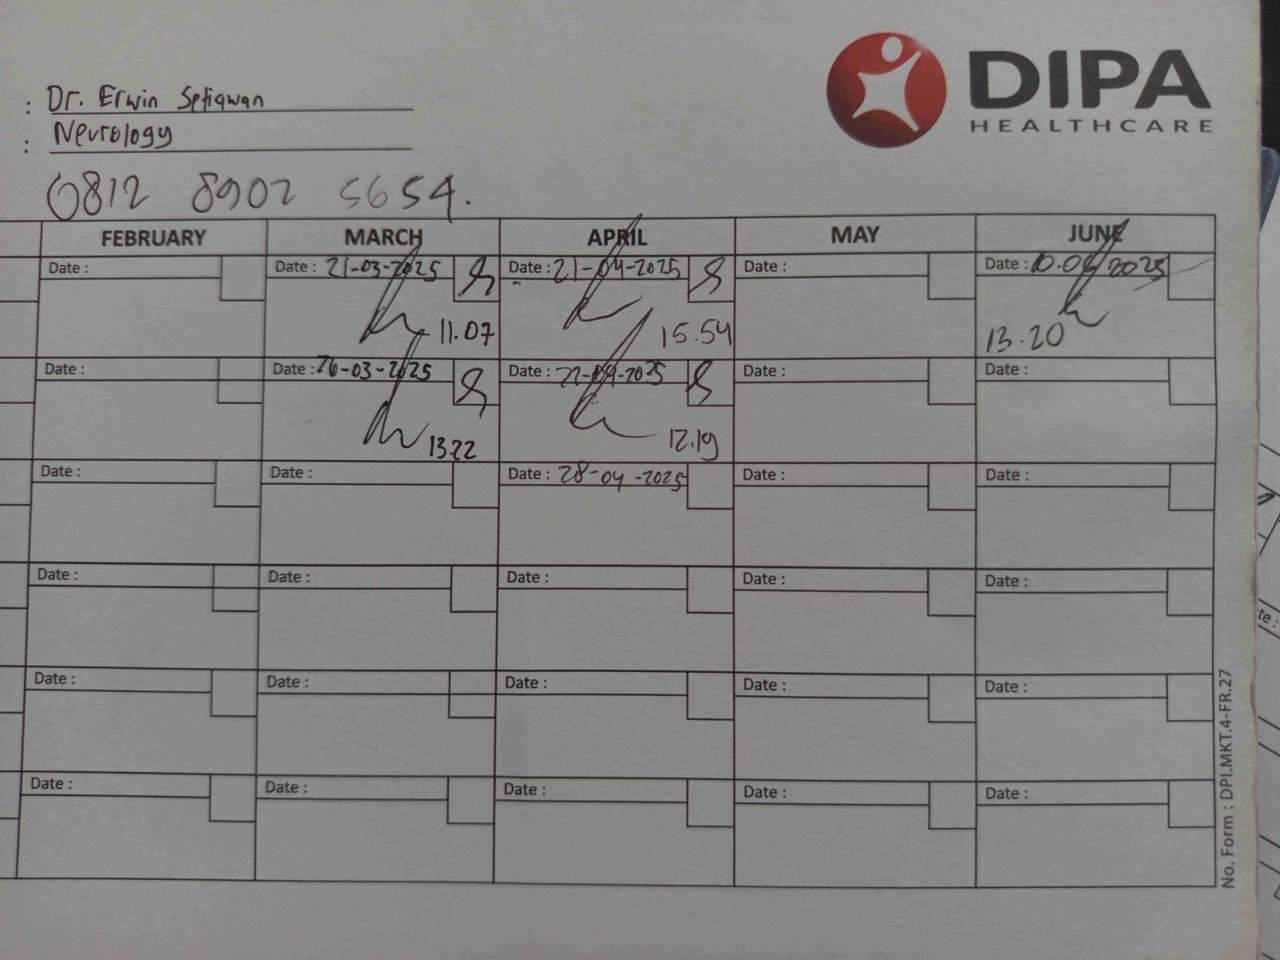 DIPA
HEALTHCARE
: Dr. Erwin Setiawan
: Neurology
0812 8902 5654.
FEBRUARY MARCH APRIL MAY JUNE
Date : Date : 21-03-2025 Date : 21-04-2025 Date : Date : 10.06.2025
11.07 15.54 13.20
Date : Date : 26-03-2025 Date : 22-04-2025 Date : Date :
13.22 12.19
Date : Date : Date : 28-04-2025 Date : Date :
Date : Date : Date : Date : Date :
Date : Date : Date : Date : Date :
Date : Date : Date : Date : Date :
No. Form : DPI.MKT.4-FR.27